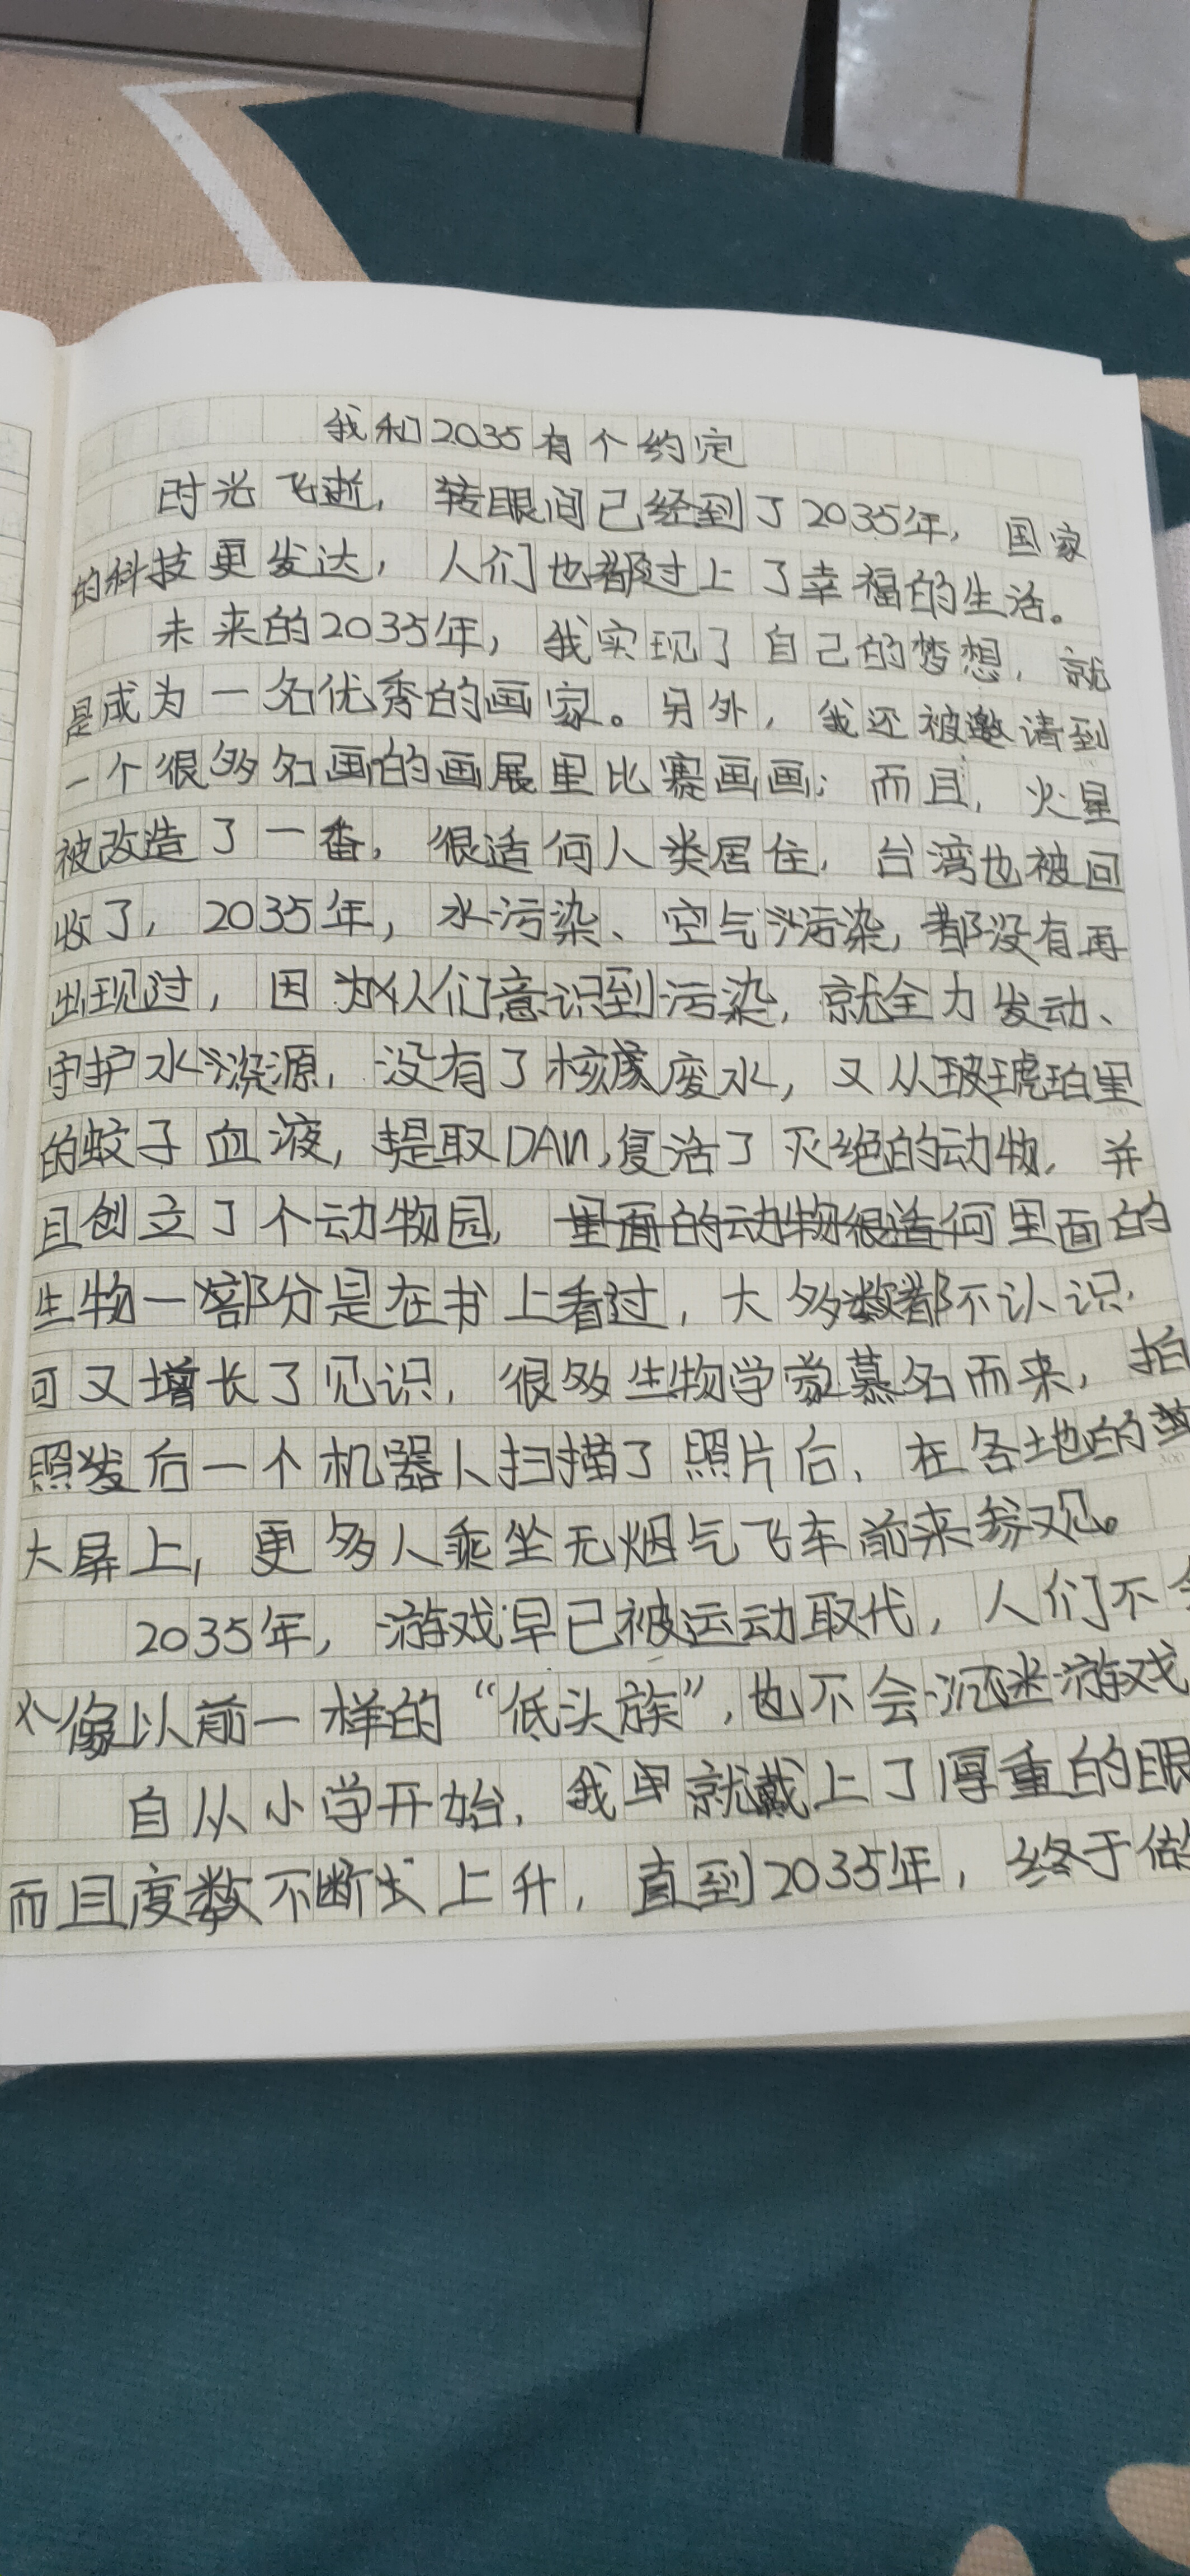 我和2035有个约定
时光飞逝，转眼间已经到了2035年，国家
的科技更发达，人们也都过上了幸福的生活。
未来的2035年，我实现了自己的梦想，就
是成为一名优秀的画家。另外，我还被邀请到
一个很多名画的画展里比赛画画；而且，火星
被改造了一番，很适何人类居住，台湾也被回
收了，2035年，水污染、空气污染，都没有再
出现过，因为人们意识到污染，就全力发动、
守护水源，没有了核废水，又从琥珀里
的蚊子血液，提取DAN，复活了灭绝的动物，并
且创立了个动物园，里面的动物很适何里面的
生物一部分是在书上看过，大多数都不认识，
可又增长了见识，很多生物学家慕名而来，拍
照发后一个机器人扫描了照片后，在各地的
大屏上，更多人乘坐无烟气飞车前来参观。
2035年，游戏早已被运动取代，人们不会
像以前一样的“低头族”，也不会沉迷游戏
自从小学开始，我早就戴上了厚重的眼
而且度数不断上升，直到2035年，终于做